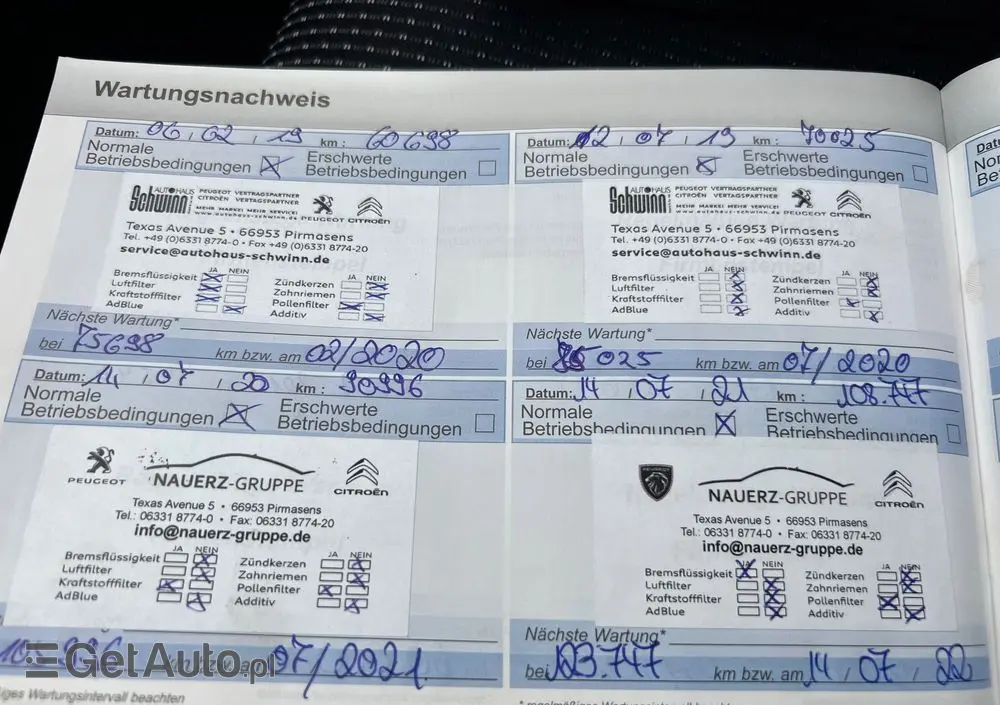 Wartungsnachweis
Datum: 06 , 02 , 19 km : 60698
Normale Betriebsbedingungen
Erschwerte Betriebsbedingungen
AUTOHAUS Schwinn
PEUGEOT VERTRAGSPARTNER
CITROËN VERTRAGSPARTNER
MEHR MARKE! MEHR SERVICE!
www.autohaus-schwinn.de
PEUGEOT CITROËN
Texas Avenue 5 • 66953 Pirmasens
Tel. +49 (0)6331 8774-0 • Fax +49 (0)6331 8774-20
service@autohaus-schwinn.de
JA NEIN JA NEIN
Bremsflüssigkeit Zündkerzen
Luftfilter Zahnriemen
Kraftstofffilter Pollenfilter
AdBlue Additiv
Nächste Wartung*
bei 75698 km bzw. am 02/2020
Datum: 02 , 07 , 19 km : 70025
Normale Betriebsbedingungen
Erschwerte Betriebsbedingungen
AUTOHAUS Schwinn
PEUGEOT VERTRAGSPARTNER
CITROËN VERTRAGSPARTNER
MEHR MARKE! MEHR SERVICE!
www.autohaus-schwinn.de
PEUGEOT CITROËN
Texas Avenue 5 • 66953 Pirmasens
Tel. +49 (0)6331 8774-0 • Fax +49 (0)6331 8774-20
service@autohaus-schwinn.de
JA NEIN JA NEIN
Bremsflüssigkeit Zündkerzen
Luftfilter Zahnriemen
Kraftstofffilter Pollenfilter
AdBlue Additiv
Nächste Wartung*
bei 85025 km bzw. am 07/2020
Datum: 14 , 07 , 20 km : 90996
Normale Betriebsbedingungen
Erschwerte Betriebsbedingungen
PEUGEOT NAUERZ-GRUPPE CITROËN
Texas Avenue 5 • 66953 Pirmasens
Tel.: 06331 8774-0 • Fax: 06331 8774-20
info@nauerz-gruppe.de
JA NEIN JA NEIN
Bremsflüssigkeit Zündkerzen
Luftfilter Zahnriemen
Kraftstofffilter Pollenfilter
AdBlue Additiv
km bzw. am 07/2021
Datum: 14 , 07 , 21 km : 108.747
Normale Betriebsbedingungen
Erschwerte Betriebsbedingungen
PEUGEOT NAUERZ-GRUPPE CITROËN
Texas Avenue 5 • 66953 Pirmasens
Tel.: 06331 8774-0 • Fax: 06331 8774-20
info@nauerz-gruppe.de
JA NEIN JA NEIN
Bremsflüssigkeit Zündkerzen
Luftfilter Zahnriemen
Kraftstofffilter Pollenfilter
AdBlue Additiv
Nächste Wartung*
bei 123.747 km bzw. am 14 , 07 , 22
GetAuto.pl
Wartungsintervall beachten